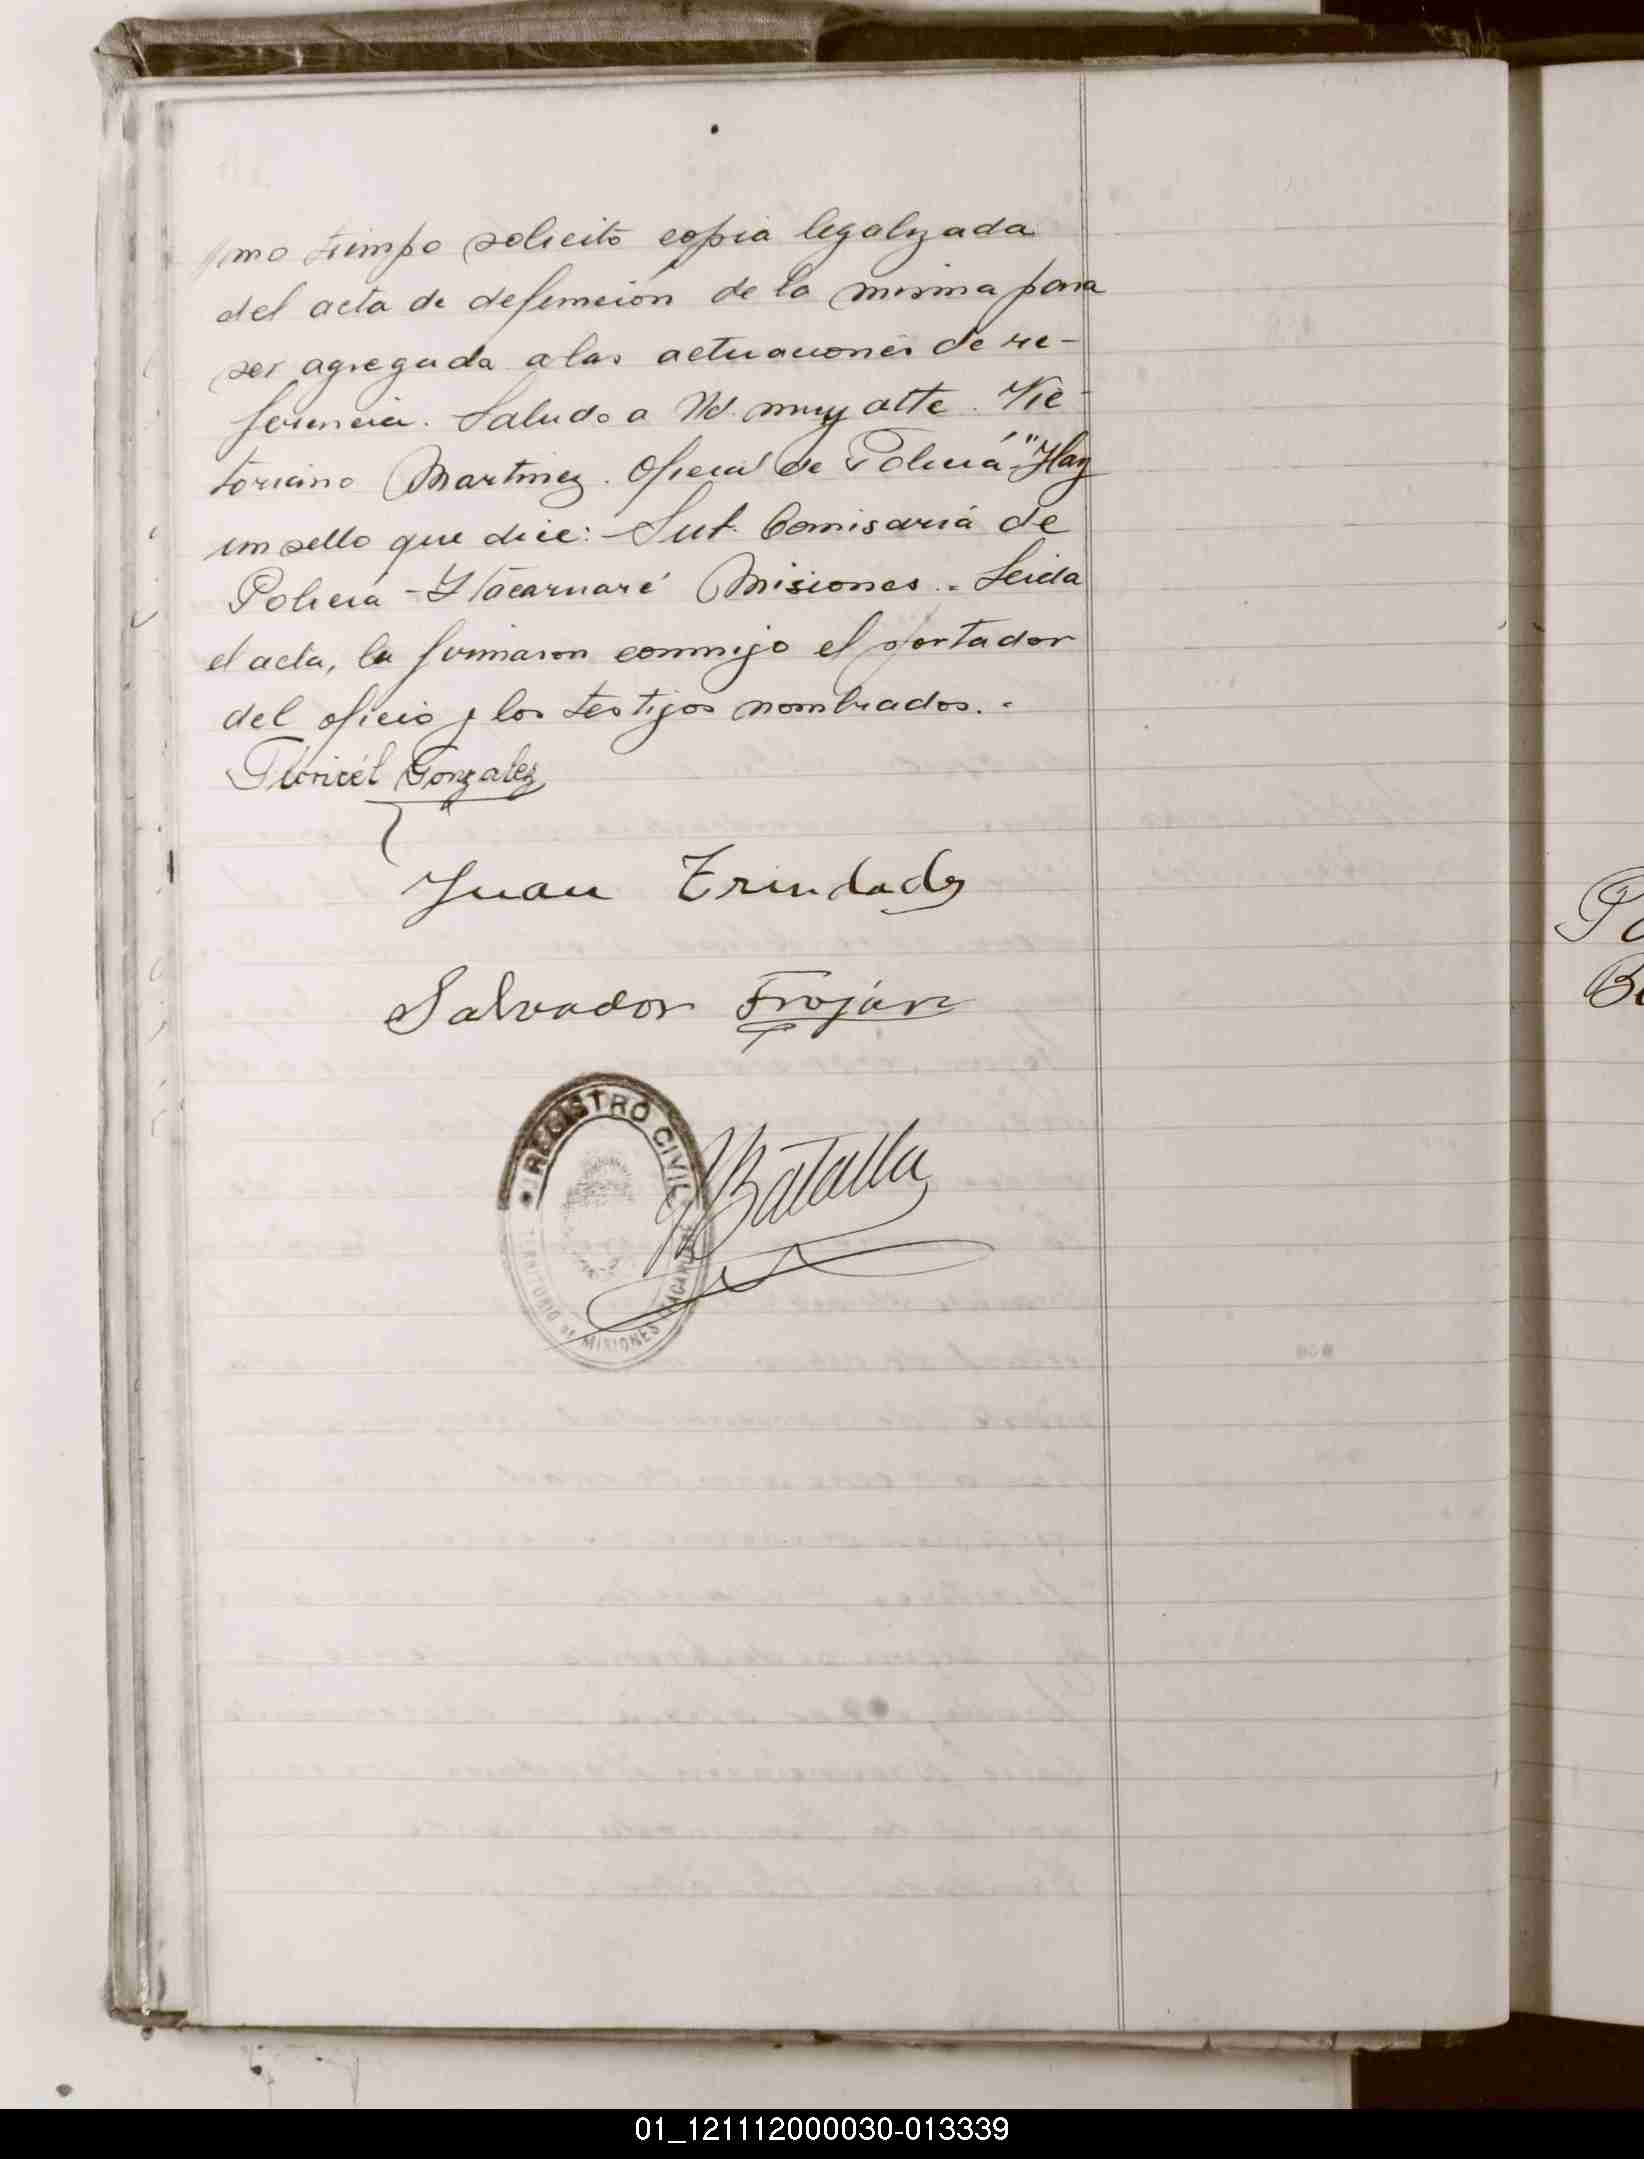 mo tiempo solicito copia legalizada
del acta de defuncion de la misma para
ser agregada a las actuaciones de re-
ferencia. Saludo a Ud. muy atte. Vic-
toriano Martinez. Oficial de Policía" Hay
un sello que dice: Sub. Comisaría de
Policía - Itacaruaré Misiones.. Leida
el acta, la firmaron conmigo el portador
del oficio y los testigos nombrados. -
Gonzalez
Juan Trindade
Salvador Froján
REGISTRO CIVIL
TERRITORIO DE MISIONES ITACARUARE
Batalla
Po
Be
01_121112000030-013339